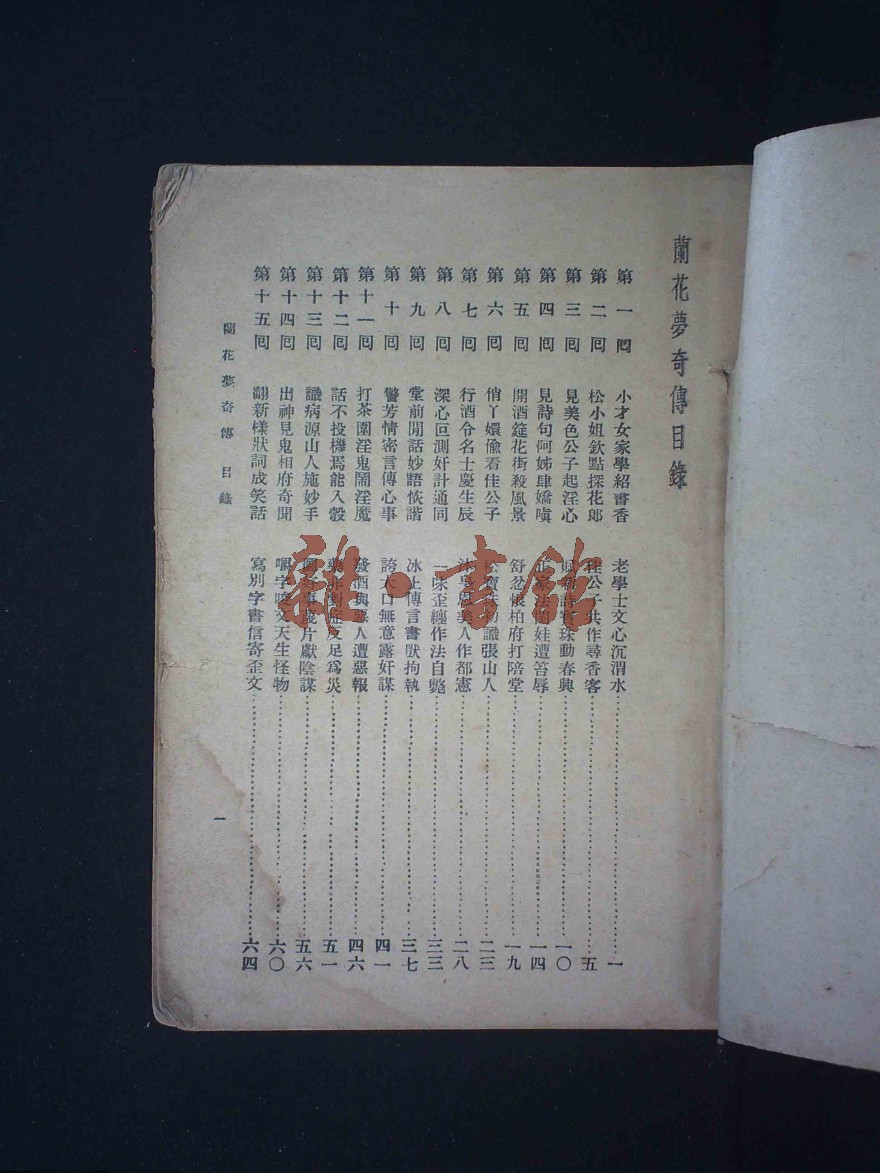 蘭花夢奇傳目錄
第一回 小才女家學紹書香 老學士文心沉渭水 一
第二回 松小姐欽點探花郎 佳公子共作尋香客 五
第三回 見美色公子起淫心 詩寶珠動春興 一〇
第四回 見詩句阿姊肆嬌嗔 家法 娃遭笞辱 一四
第五回 開酒筵花街殺風景 舒忿悵柏府打陪堂 一九
第六回 俏丫嬛偷看佳公子 松寶珠初識張山人 二三
第七回 行酒令名士慶生辰 沐皇恩美人作都憲 二八
第八回 深心叵測奸計通同 一味歪纏作法自斃 三三
第九回 堂前閒話妙語恢諧 冰上傳言書獃拘執 三七
第十回 警芳情密言傳心事 誇大口無意露奸謀 四一
第十一回 打茶圍淫鬼鬧淫魔 發酒興惡人遭惡報 四六
第十二回 話不投機焉能入彀 藥非對症反足為災 五一
第十三回 議病源山人施妙手 圖好事麗片獻陰謀 五六
第十四回 出神見鬼相府奇聞 嚼字咬文天生怪物 六〇
第十五回 翻新樣狀詞成笑話 寫別字書信寄歪文 六四
蘭花夢奇傳 目錄
一
雜·書館